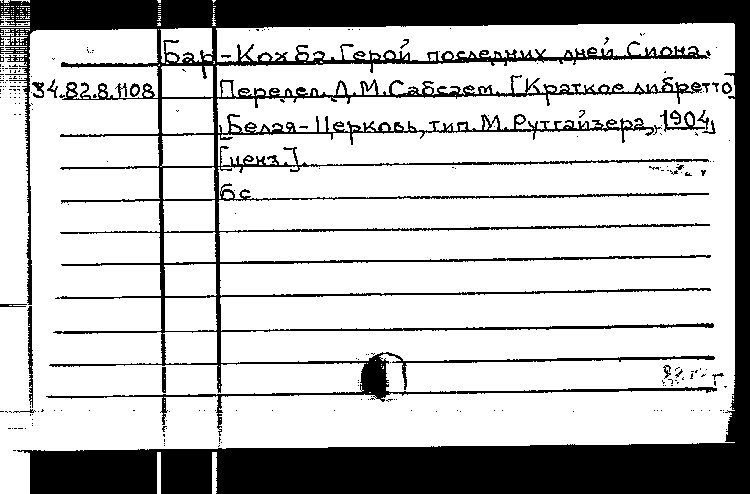 Бар-Кохба. Герой последних дней Сиона.
34.82.8.1108 Передел. Д.М. Сабсаем. [Краткое либретто]
Белая-Церковь, тип. М. Рутгайзера, 1904,
[ценз.].
бс